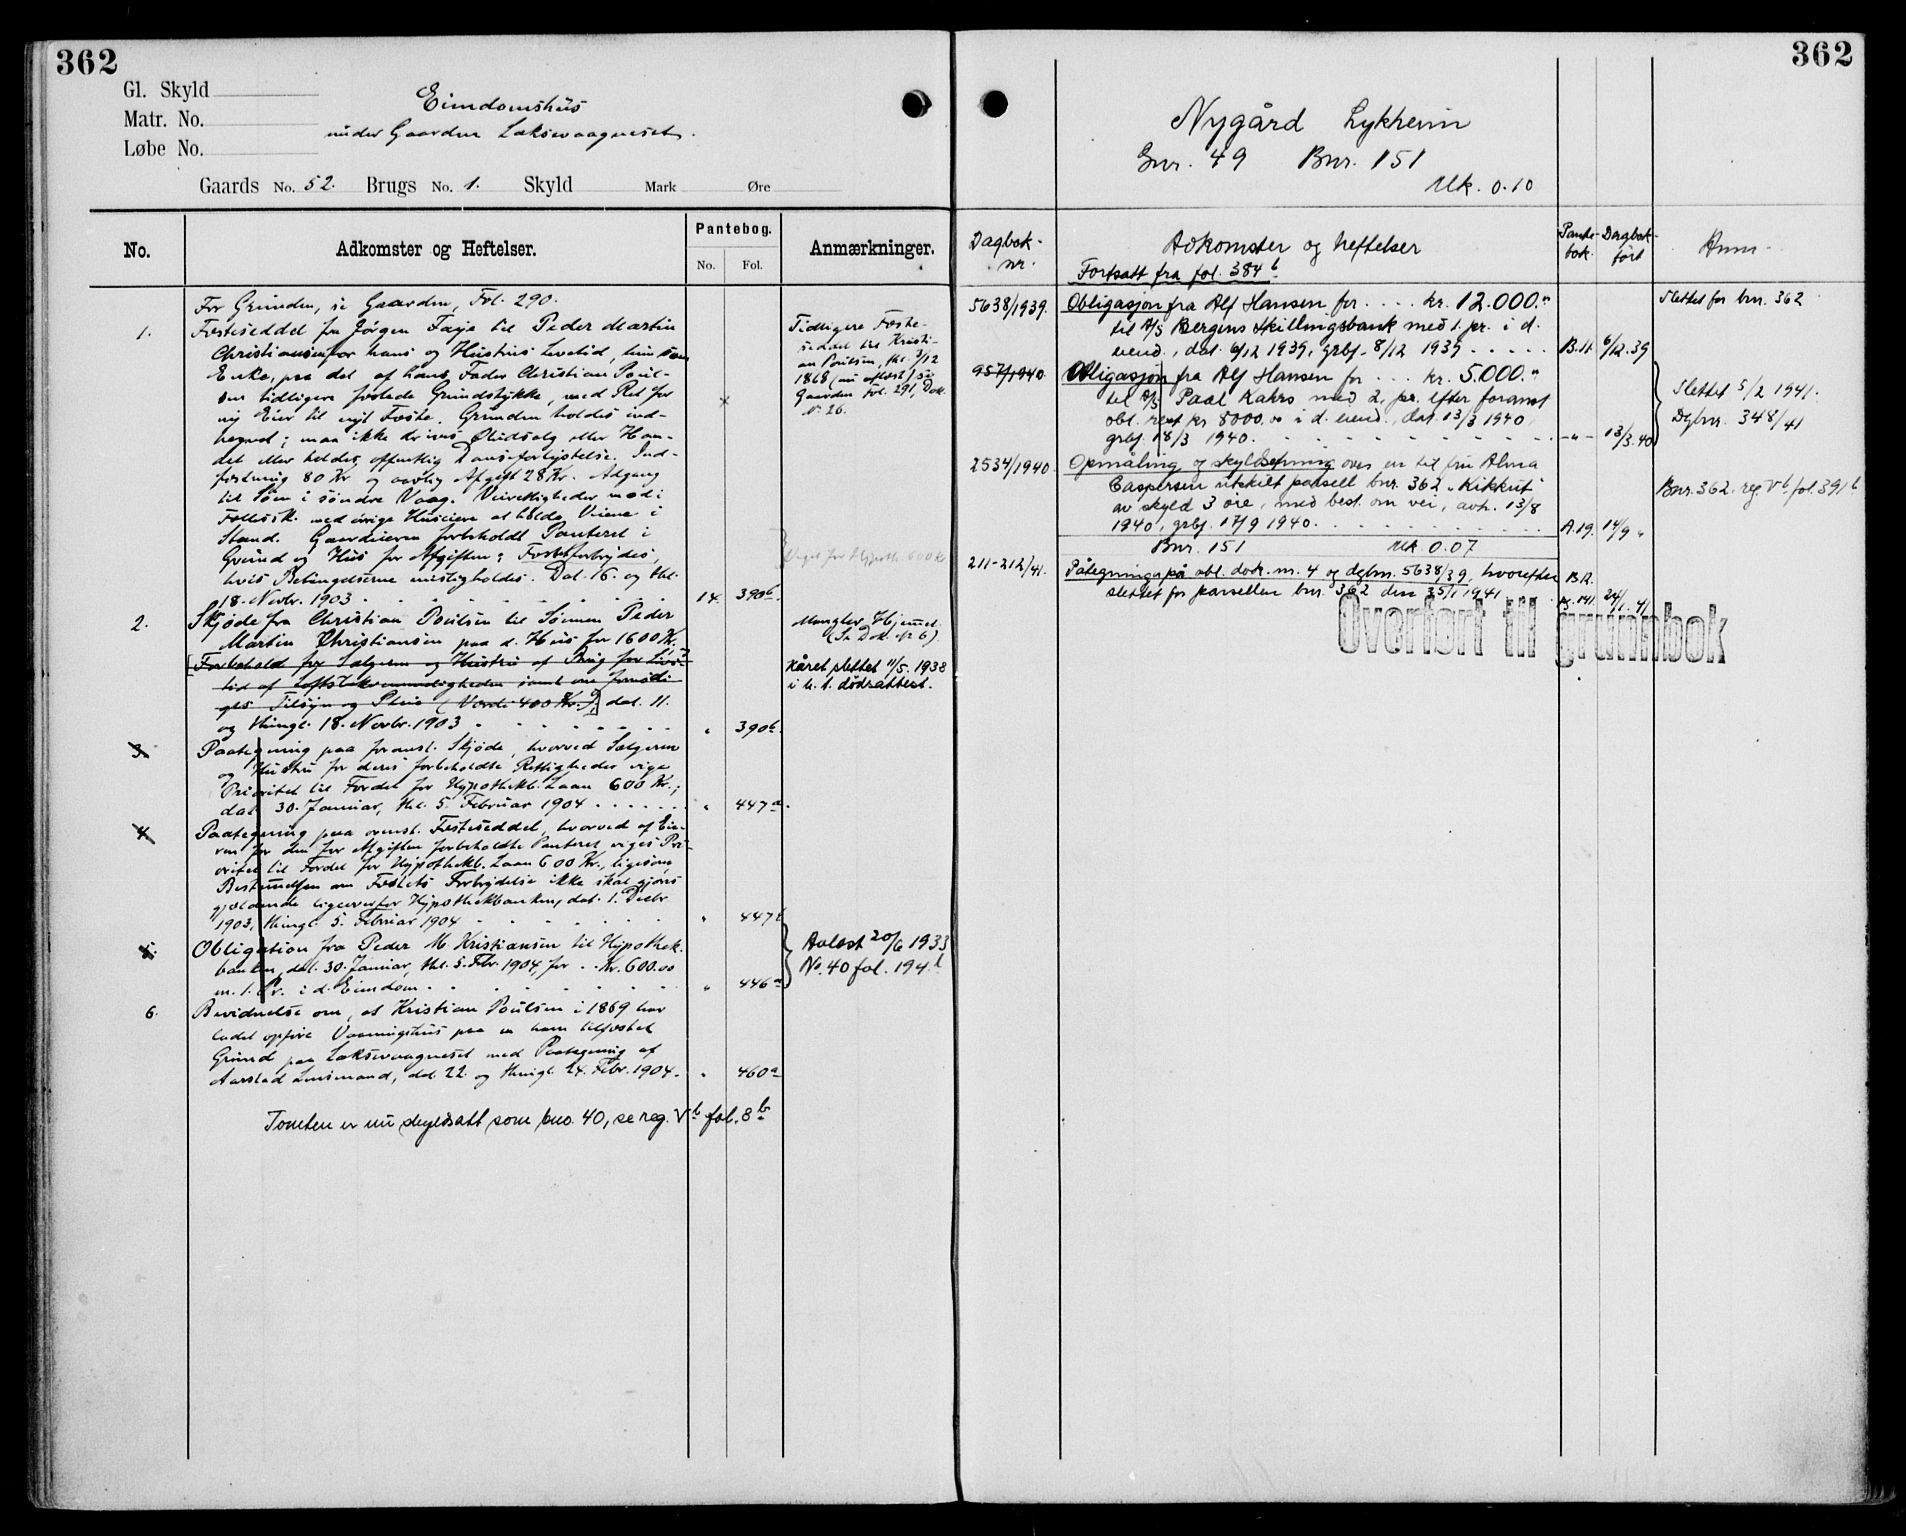 362
Gl. Skyld
Matr. No.
Løbe No.
Eiendomshus
under Gaarden Laksevaagneset.
Gaards No. 52. Brugs No. 1. Skyld Mark Øre
No.
Adkomster og Heftelser.
Pantebog.
No. Fol.
Anmærkninger.
For Grunden, se Gaarden, Fol. 290.
1. Festeseddel fra Jørgen Faye til Peder Martin
Christiansen for hans og Hustrus Levetid, hun som
Enke, paa det af hans Fader Christian Poul-
sen tidligere festede Grundstykke, med Ret for
ny Eier til nyt Feste. Grunden holdes ind-
hegnet; maa ikke drives Øludsalg eller Han-
del eller holdes offentlig Danseforlystelse. Ind-
festning 80 Kr og aarlig Afgift 28 Kr. Adgang
til Søen i søndre Vaag. Veirettigheder mod i
Fællessk. med øvrige Huseiere at holde Veiene i
Stand. Gaardeieren forbeholdt Panteret i
Grund og Hus for Afgiften; Festet forbrydes,
hvis Betingelserne misligholdes. Dat. 16. og thl.
18. Novbr. 1903 14. 390b
Tidligere Feste-
seddel til Kristi-
an Poulsen, thl. 3/12
1868 (nu aflæst) se
Gaarden Fol. 291, Dok.
No 26.
Veget for Hypoth. 600 Kr
2. Skjøde fra Christian Poulsen til Sønnen Peder
Martin Christiansen paa d. Hus for 1600 Kr.
[Forbehold for Sælgeren og Hustru af Brug for Livs-
tid af Loftsbekvemmeligheden samt om fornødi-
get Tilsyn og Pleie (Værdi 400 Kr.)], dat. 11.
og thingl. 18. Novbr. 1903 " 390b.
Mangler Hjemmel
(Se Dok. No 6).
Kåret slettet 11/5. 1938
i h. t. dødsattest.
3. Paategning paa foranst. Skjøde, hvorved Sælgeren
og Hustru for deres forbeholdte Rettigheder viger
Prioritet til Fordel for Hypothekb. Laan 600 Kr.;
dat. 30. Januar, thl. 5. Februar 1904 " 447a.
4. Paategning paa ovenst. Festeseddel, hvorved af Eie-
ren for den for Afgiften forbeholdte Panteret viges Pri-
oritet til Fordel for Hypothekb. Laan 600 Kr., ligesom
Bestemmelsen om Festets Forbrydelse ikke skal gjøres
gjældende ligeoverfor Hypothekbanken, dat. 1. Decbr.
1903, thingl. 5. Februar 1904 " 447b
5. Obligation fra Peder M. Kristiansen til Hypothek-
banken, dat. 30. Januar, thl. 5. Febr. 1904, for . . Kr. 600.00
m. 1. Pr. i d. Eiendom " 446a
Avlest 20/6 1933
No. 40 fol. 194b
6. Bevidnelse om, at Kristian Poulsen i 1869 har
ladet opføre Vaaningshus paa en ham tilfæstet
Grund paa Laksevaagneset med Paategning af
Aarstad Lensmand, dat. 22. og thingl. 24. Febr. 1904. " 460a
Tomten er nu skyldsatt som bno. 40, se reg. Vb fol. 8b
362
Nygård Lykheim
Gnr. 49 Bnr. 151
Mk. 0.10
Dagbok-
nr.
Adkomster og heftelser
Pante-
bok.
Dagbok-
ført
Anm.
Fortsatt fra fol. 384b
5638/1939. Obligasjon fra Alf Hansen for . . . . kr. 12.000."
til A/S Bergens Skillingsbank med 1. pr. i d.
eiend., dat. 6/12 1939, grbf. 8/12 1939 . . . . . B.11. 6/12.39
Slettet for bnr. 362
957/1940 Obligasjon fra Alf Hansen for . . . kr. 5.000."
til A/S Paal Kahrs med 2. pr. efter foranst
obl. rest kr 8000.00 i d. eiend., dat. 13/3 1940,
grbf. 18/3 1940. -"- 13/3.40
Slettet 5/2 1941.
Dgbnr. 348/41
2534/1940 Opmåling og skyldsetning over en til fru Alma
Caspersen utskilt parsell bnr. 362 "Kikkut"
av skyld 3 øre, med best. om vei, avh. 13/8
1940, grbf. 17/9 1940. A.19. 14/9 "
Bnr. 362. reg. Vb fol. 391b
Bnr. 151 Mk 0.07
211-212/41. Påtegninger på obl. dok. nr. 4 og dgbnr. 5638/39, hvorefter
slettet for parsellen bnr. 362 den 25/1 1941 24/1.41
Overført til grunnbok